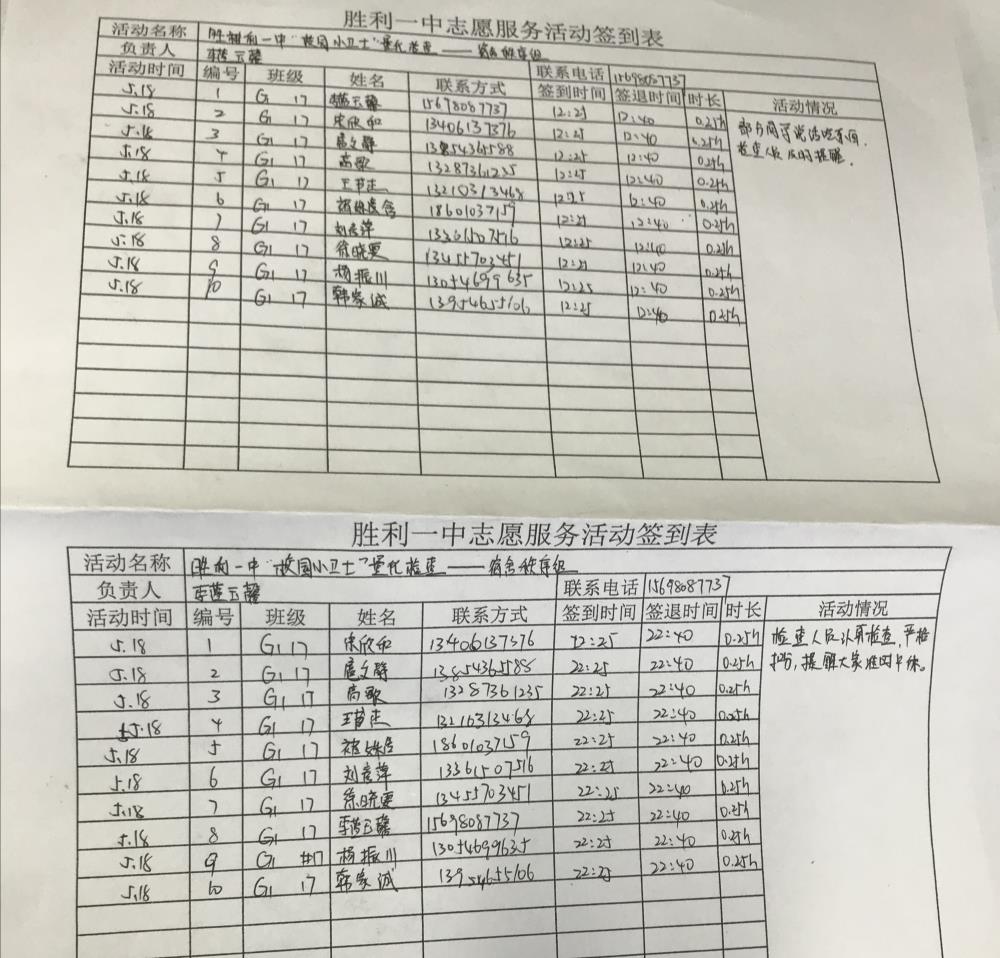 胜利一中志愿服务活动签到表
活动名称 胜利一中"校园小卫士"量化检查——宿舍秩序组
负责人 联系电话 15698087737
活动时间 编号 班级 姓名 联系方式 签到时间 签退时间 时长 活动情况
5.18 1 G1 17 15698087737 12:25 12:40 0.25h
5.18 2 G1 17 宋欣和 13406137376 12:25 12:40 0.25h
5.18 3 G1 17 13854365588 12:25 12:40 0.25h
5.18 4 G1 17 高歌 13287361235 12:25 12:40 0.25h
5.18 5 G1 17 13210313468 12:25 12:40 0.25h
5.18 6 G1 17 18601037159 12:25 12:40 0.25h
5.18 7 G1 17 刘彦萍 13361507516 12:25 12:40 0.25h
5.18 8 G1 17 徐晓雯 13455703451 12:25 12:40 0.25h
5.18 9 G1 17 杨振川 13054699635 12:25 12:40 0.25h
5.18 10 G1 17 韩家诚 13954655106 12:25 12:40 0.25h
部分同学说话吃东西,
检查人员及时提醒.
胜利一中志愿服务活动签到表
活动名称 胜利一中"校园小卫士"量化检查——宿舍秩序组
负责人 联系电话 15698087737
活动时间 编号 班级 姓名 联系方式 签到时间 签退时间 时长 活动情况
5.18 1 G1 17 宋欣和 13406137376 12:25 22:40 0.25h
5.18 2 G1 17 13854365588 22:25 22:40 0.25h
5.18 3 G1 17 高歌 13287361235 22:25 22:40 0.25h
5.18 4 G1 17 13210313468 22:25 22:40 0.25h
5.18 5 G1 17 18601037159 22:25 22:40 0.25h
5.18 6 G1 17 刘彦萍 13361507516 22:25 22:40 0.25h
5.18 7 G1 17 徐晓雯 13455703451 22:25 22:40 0.25h
5.18 8 G1 17 15698087737 22:25 22:40 0.25h
5.18 9 G1 17 杨振川 13054699635 22:25 22:40 0.25h
5.18 10 G1 17 韩家诚 13954655106 22:25 22:40 0.25h
检查人员认真检查,严格
提醒大家准时午休。